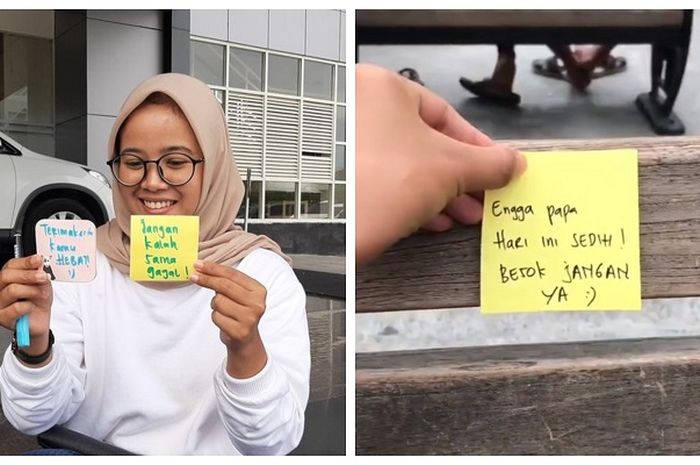 TERIMAKASIH
KAMU
HEBAT!
:)
Jangan
kalah
sama
gagal!
Engga papa
HARI INI SEDIH!
BESOK JANGAN
YA :)